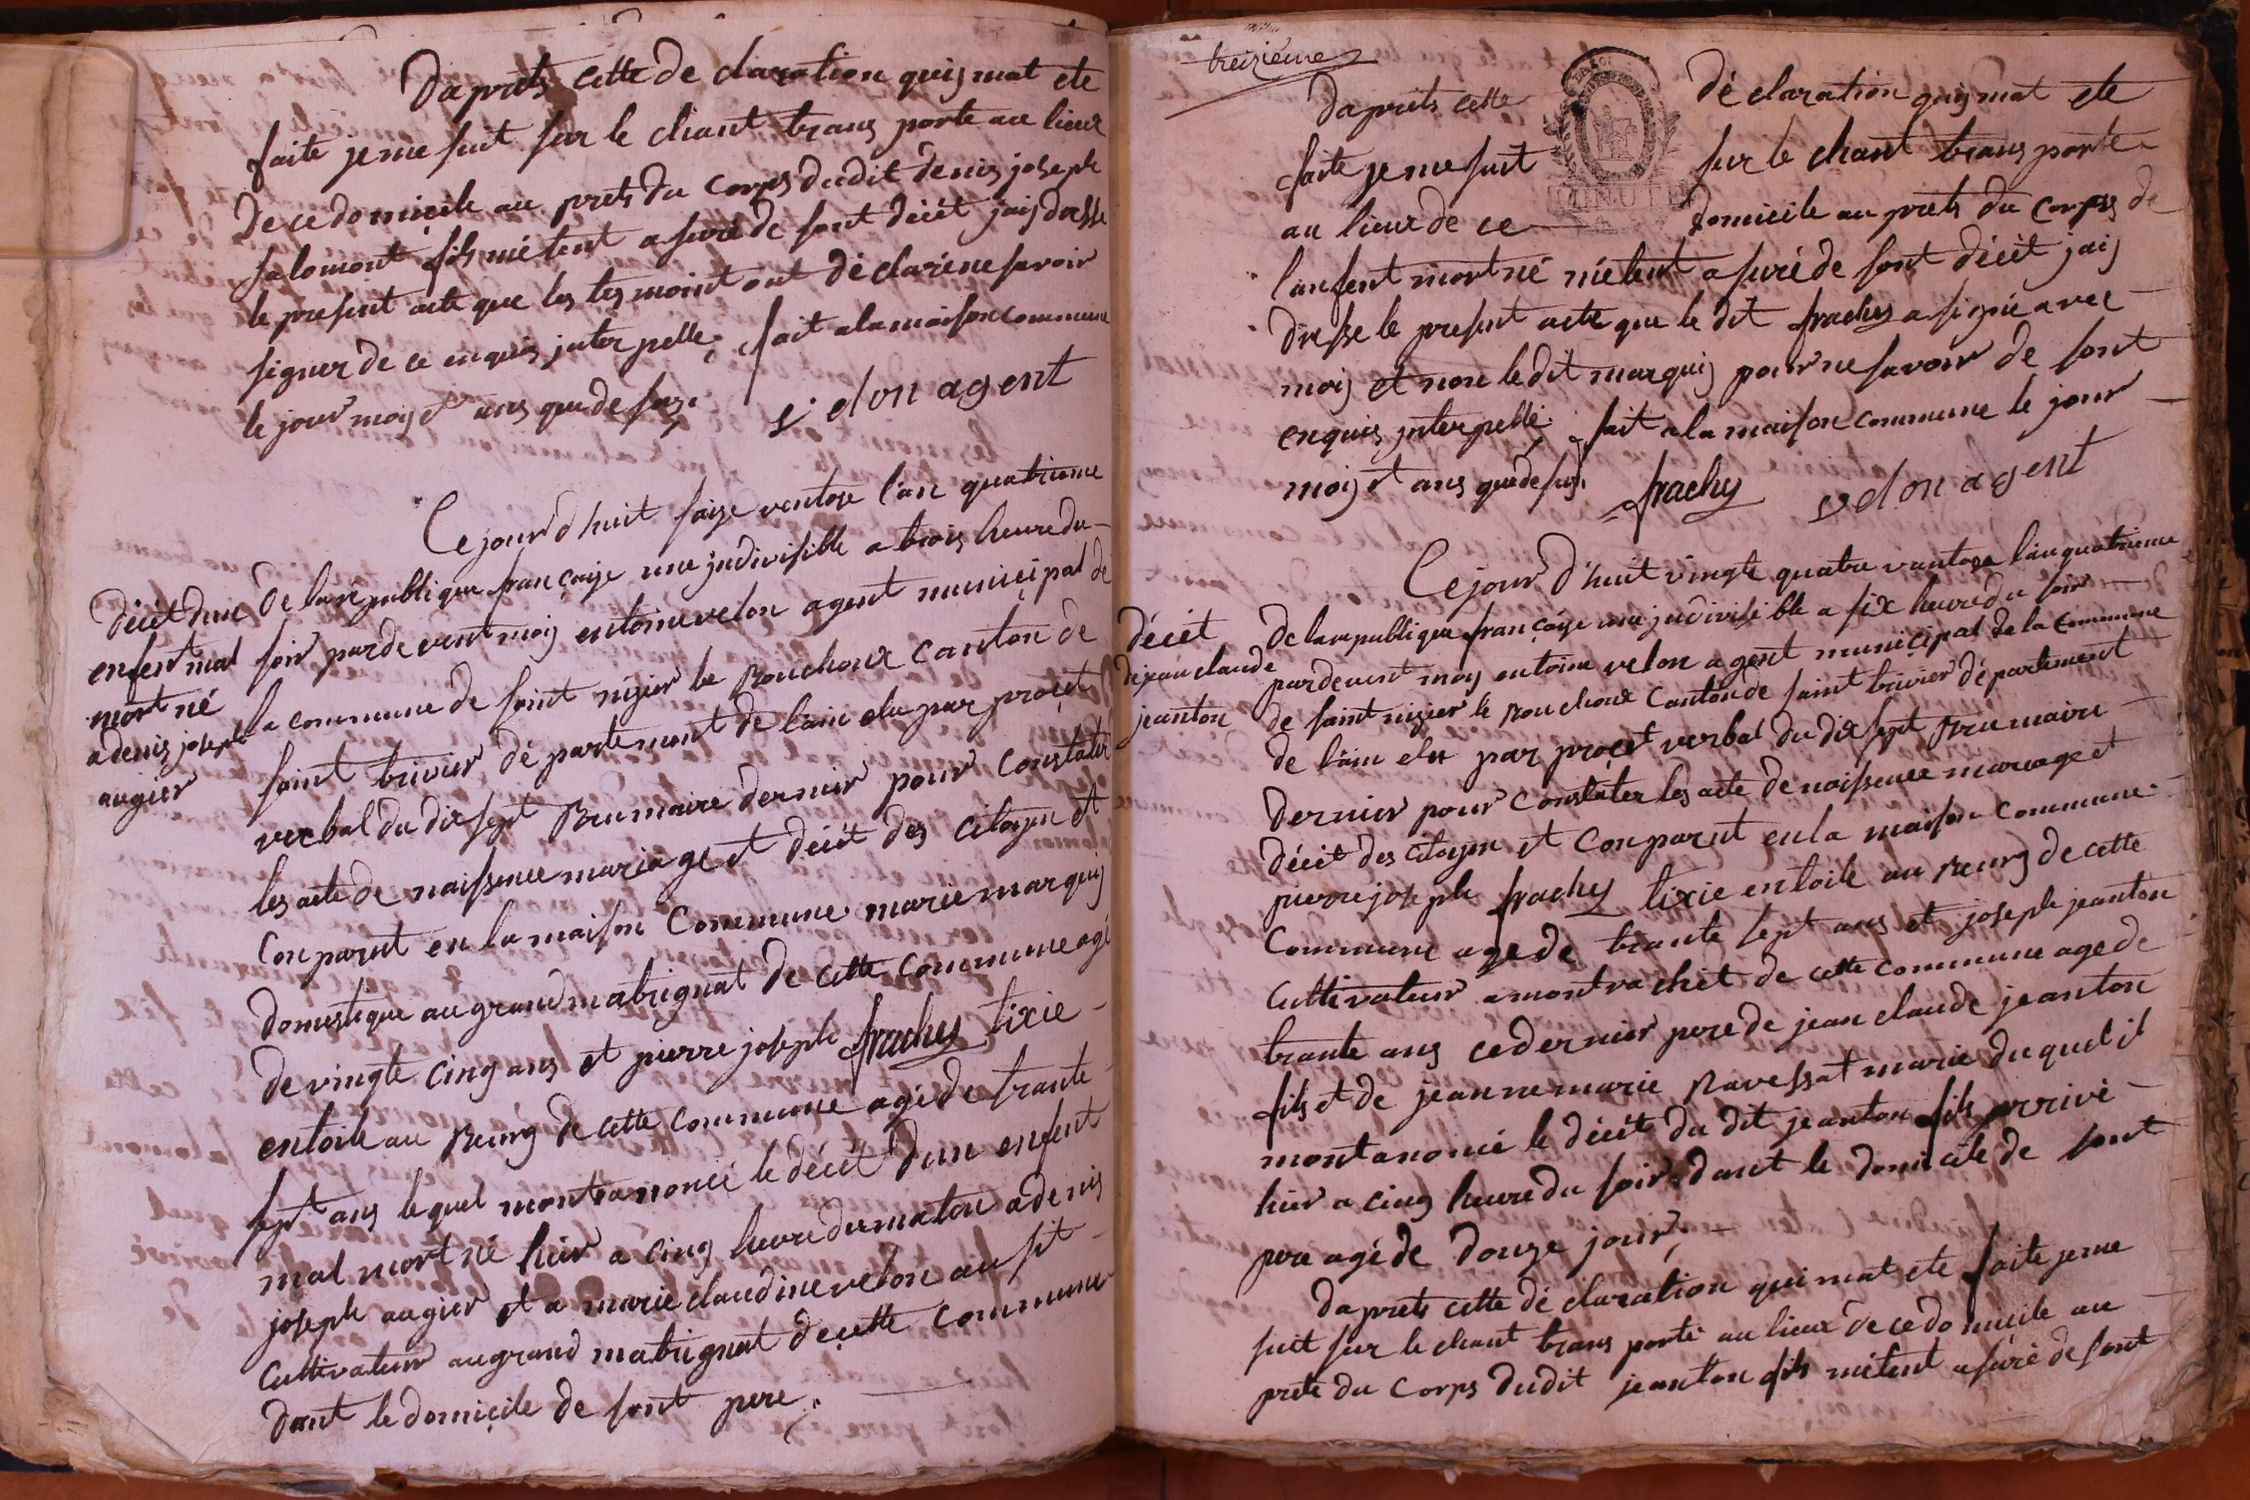 Daprets cette de claration quis mat ete
faite je me suit sur le chant trans porte au lieux
de ce domicile au prets du corps dudit denis joseph
salomont fils métent asuré de sont décét jais dresse
le present acte que les tesmoint ont déclaré ne savoir
signer de ce enquis jnter pelle; fait a la maison commune
le jour mois et ans que de sus.
velon agent
Ce jour d huit saize ventose l'an quatrieme
décét dun
enfent mal
mort né
a denis joseph
augier
de la republique françaize une jndivisible a trois heure du
soir parde vent mois entoine velon agent municipal de
la commune de saint nizier le Bouchoux canton de
saint trivier dé partement de lain elu par procet
verbal du dix sept Brumaire dernier pour constater
les acte de naissence mariage et décét des citoyen et
Conparut en la maison Commune marie marquis
domestique au grand matrignat de cette commune agé
de vingte cinq ans et pierre joseph frachy tixie
entoile au Bourg de cette commune agé de trante
sept ans lequel mont anoncé le décét dun enfent
mal mort né hier a cinq heure du maton a denis
joseph augier et a marie claudine velon au sit
Cultivateur au grand matrignat de cette commune
dant le domicile de sont pere.
treizieme
MINUTE
Daprets cette déclaration quis mat ete
faite je me suit sur le chant trans porté
au lieux de ce domicile au prets du corps de
lanfent mort né métent asuré de sont décét jais
dresse le present acte que le dit frachy a signé avec
mois et non le dit marquis pour ne savoir de sont
enquis jnterpellé. fait a la maison commune le jour
mois et ans que de sus.
frachy velon agent
Ce jour d'huit vingte quatre vantose l'an quatrieme
décét
de jean claude
jeanton
de la republique françaize une jndivisible a six heure du soir
pardevent moy entoine velon agent municipal de la commune
de saint nizier le Bouchoux Canton de saint trivier dé partement
de lain elu par procet verbal du dix sept Brumaire
dernier pour constater les acte de naissence mariage et
décét des citoyen et Conparut en la maison Commune
pierre joseph frachy tixie entoile au Bourg de cette
Commune age de trante sept ans et joseph jeanton
Cultivateur a montrachet de cette commune age de
trante ans ce dernier pere de jean claude jeanton
fils et de jeanne marie Ravessat marie du quel il
mont anoncé le décét du dit jeanton fils arrivé
hier a cinq heure du soir dant le domicile de sont
pere agé de douze jour,
Daprets cette dé claration qui mat ete faite je me
suit sur le chant trans porté au lieux de ce domicile au
prets du corps dudit jeanton fils métent asuré de sont